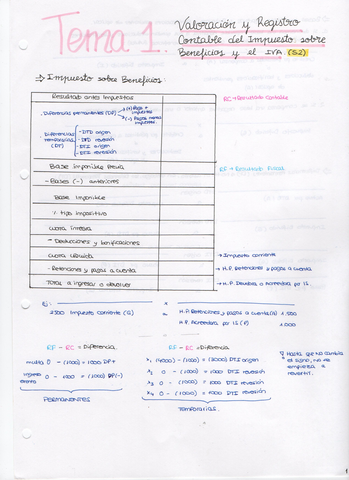 Tema 1.
Valoración y Registro
Contable del Impuesto sobre
Beneficios y el IVA. (S2)
→ Impuesto sobre Beneficios.
Resultado antes impuestos
RC → Resultado Contable
· Diferencias permanentes (DP)
(+) Pago + impuestos
(-) Pagas menos impuestos.
· Diferencias temporarias (DT)
- DTD origen
- DTD reversión
- DTI origen
- DTI reversión
Base imponible previa
RF → Resultado Fiscal
- Bases (-) anteriores
Base Imponible
% tipo impositivo
Cuota íntegra
- Deducciones y bonificaciones
Cuota líquida
→ Impuesto corriente
- Retenciones y pagos a cuenta
→ H.P. Retenciones y pagos a cuenta
Total a ingresar o devolver
→ H.P. Deudora o Acreedora por IS.
Ej:
x
2500 Impuesto corriente (G)
a
H.P. Retenciones y pagos a cuenta (A) 1.500
H.P. Acreedora por IS (P) 1.000
RF - RC = Diferencia.
multa 0 - (1000) = 1000 DP+
ingreso exento 0 - 1000 = (1000) DP(-)
PERMANENTES
RF - RC = Diferencia
(4000) - (1000) = (3000) DTI origen
0 - (1000) = 1000 DTI reversión
0 - (1000) = 1000 DTI reversión
0 - (1000) = 1000 DTI reversión
TEMPORARIAS.
Hasta que no cambia
el signo, no se
empieza a
revertir.